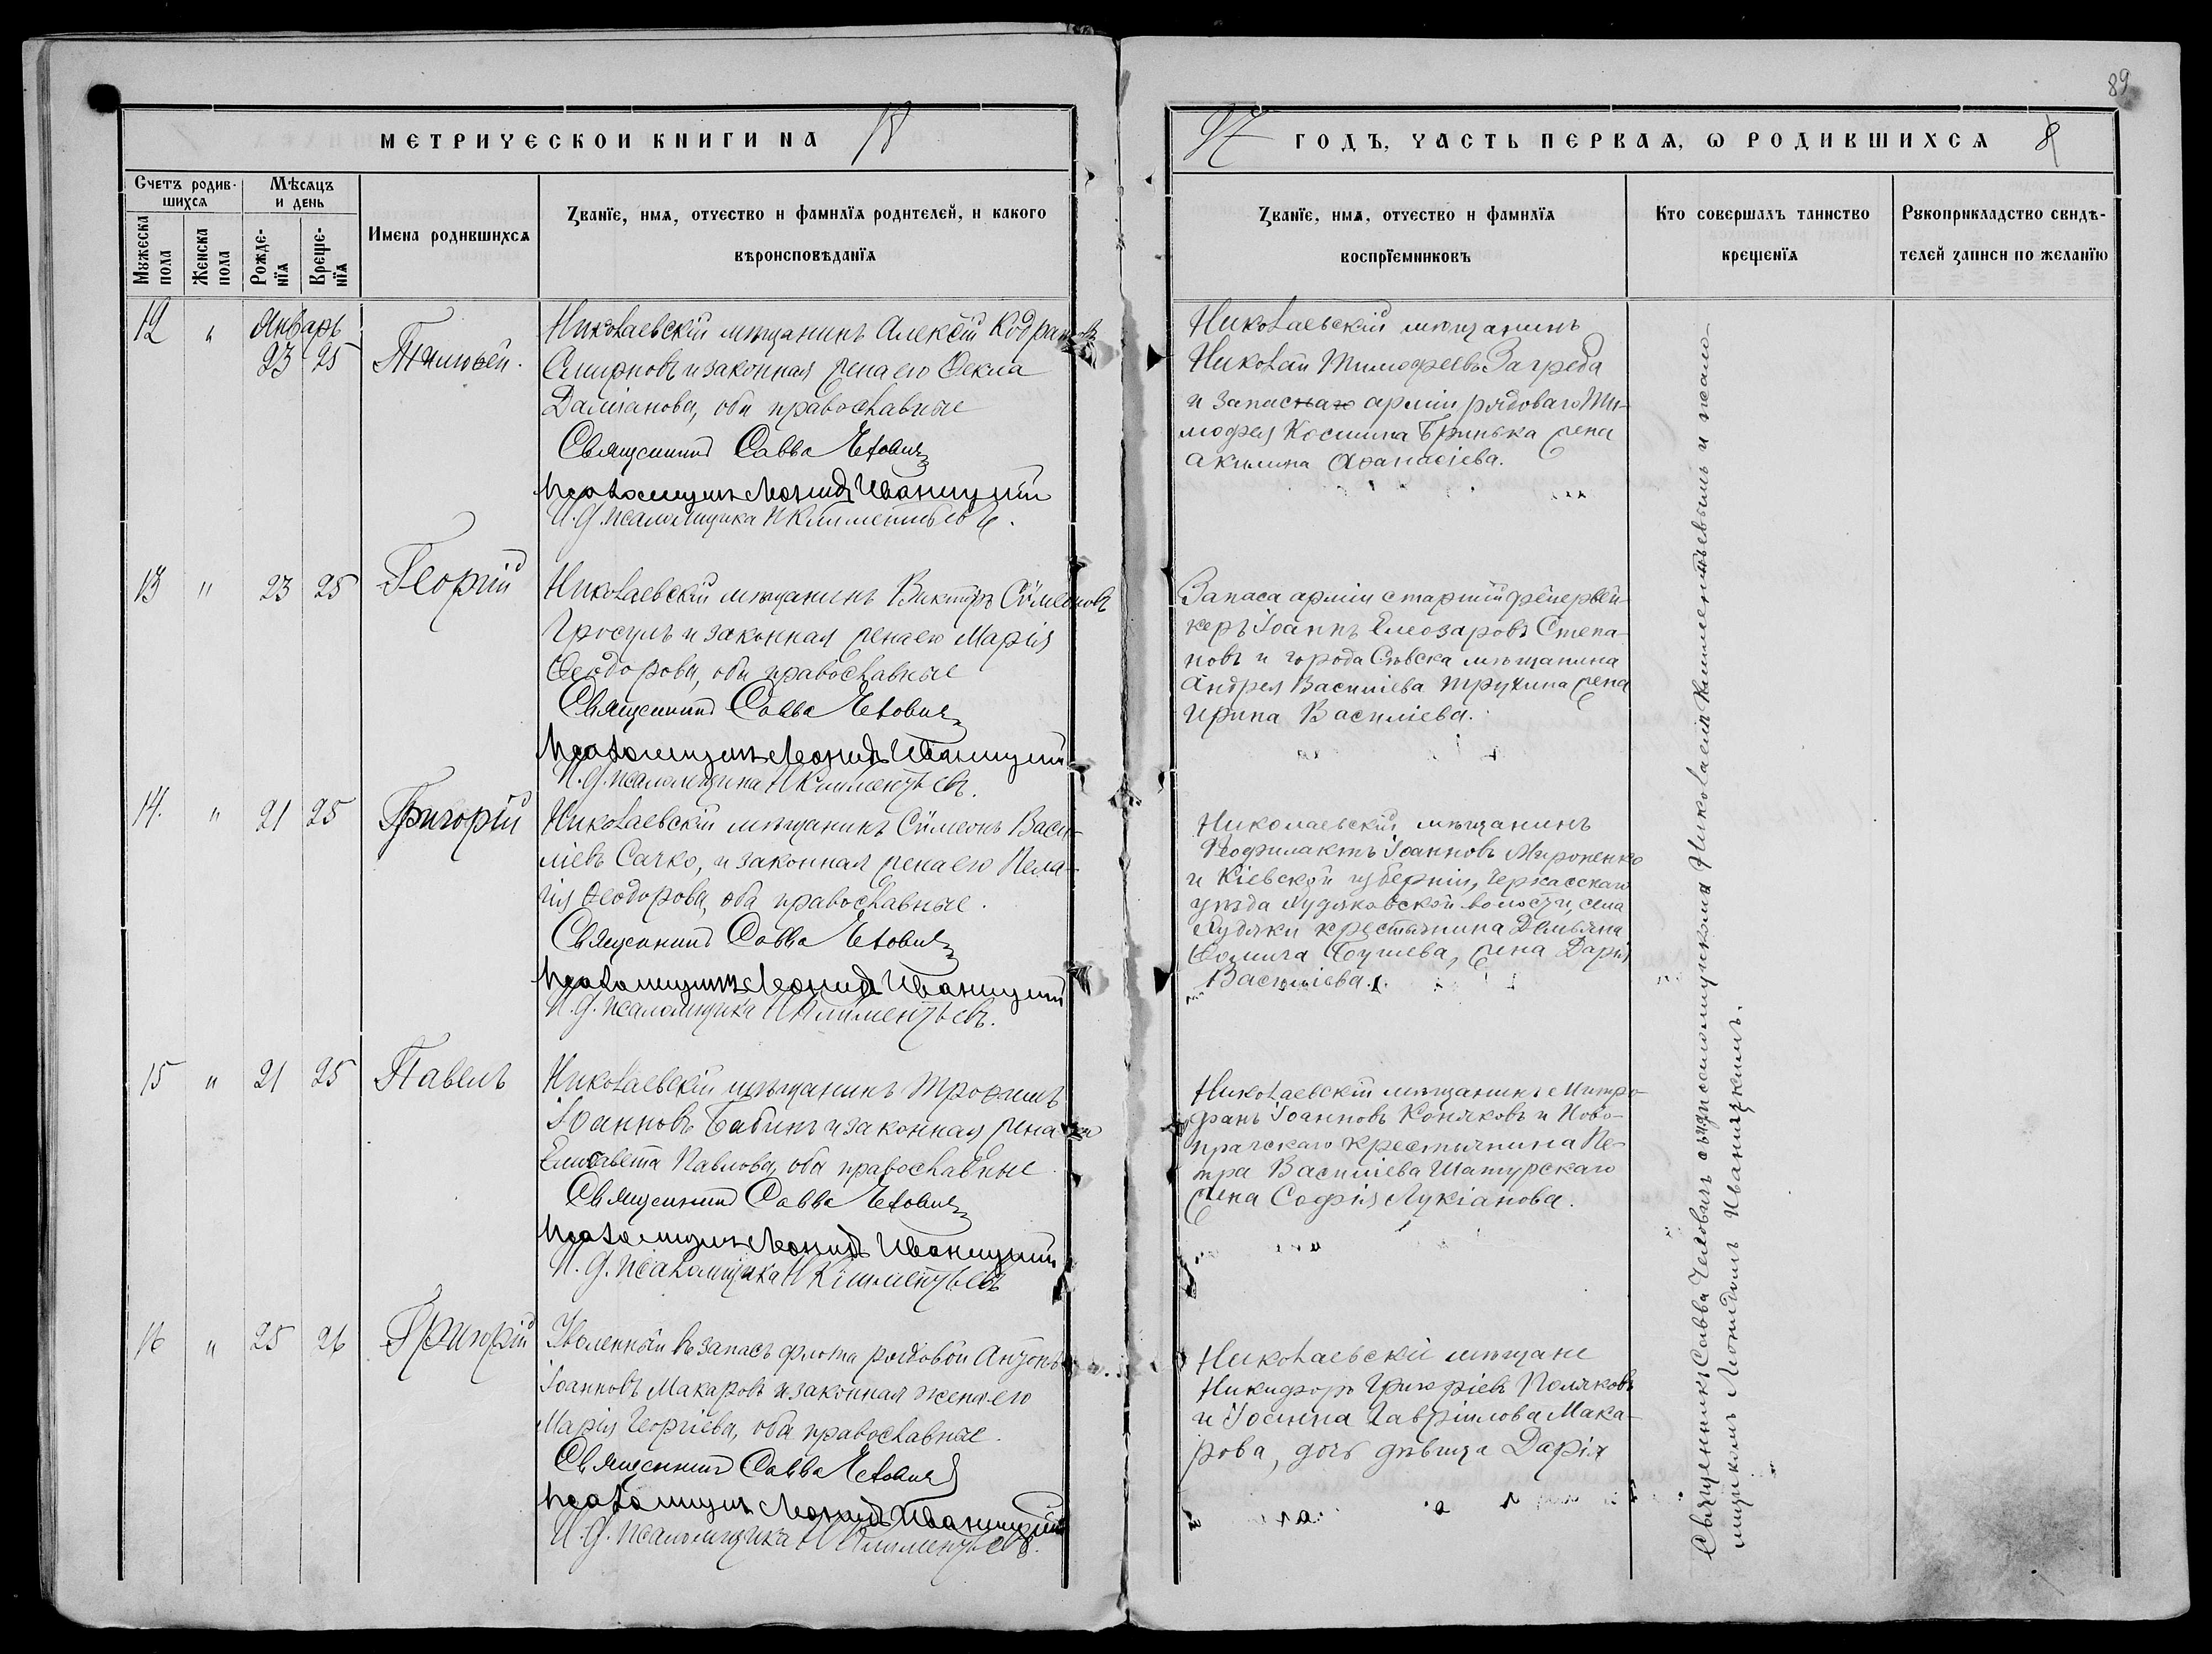 89
МЕТРИЧЕСКОЙ КНИГИ НА 18
97 ГОДЪ, ЧАСТЬ ПЕРВАЯ, Ѡ РОДИВШИХСЯ 8
Счетъ родив-
шихся
Мѣсяцъ
и день
Мужеска
пола
Женска
пола
Рожде-
нїя
Креще-
нїя
Имена родившихся
Званїе, имя, отчество и фамилїя родителей, и какого
вѣроисповѣданїя
Званїе, имя, отчество и фамилїя
воспрїемниковъ
Кто совершалъ таинство
крещенїя
Рукоприкладство свидѣ-
телей записи по желанїю
12 " Январь
23 25 Тимоѳей.
Николаевскій мѣщанинъ Алексѣй
Смирновъ и законная жена его Ѳекла
Даміанова, оба православные
Священникъ Савва Человичъ
Псаломщикъ Леонидъ Иваницкій
И. д. псаломщика Н Климентьевъ.
Николаевскій мѣщанинъ
Николай Тимофеевъ Загреба
и запаснаго арміи рядоваго Ти-
мофея Космина Гринька жена
Акилина Аѳанасіева.
13 " 23 25 Георгій
Николаевскій мѣщанинъ Викторъ Сѵмеоновъ
Гросулъ и законная жена его Марія
Ѳеодорова, оба православные
Священникъ Савва Человичъ
Псаломщикъ Леонидъ Иваницкій
И. д. псаломщика Н Климентьевъ.
Запаса арміи старшій фейервей-
керъ Іоаннъ Елеозаровъ Степа-
новъ и города Сѣвска мѣщанина
Андрея Василіева Трухина жена
Ирина Василіева.
14. " 21 25 Григорій
Николаевскій мѣщанинъ Сѵмеонъ Васи-
ліевъ Сачко, и законная жена его Пела-
гія Ѳеодорова, оба православные.
Священникъ Савва Человичъ
Псаломщикъ Леонидъ Иваницкій
И. д. псаломщика Н Климентьевъ.
Николаевскій мѣщанинъ
Феофилактъ Іоанновъ Мироненко
и Кіевской губерніи, Черкасскаго
уѣзда Худяковской волости, села
Худяки крестьянина Демьяна
Ѳомича жена Дарія
Василіева.
15 " 21 25 Павелъ
Николаевскій мѣщанинъ Трофимъ
Іоанновъ Бабинъ и законная жена его
Елисавета Павлова, оба православные
Священникъ Савва Человичъ
Псаломщикъ Леонидъ Иваницкій
И. д. псаломщика Н Климентьевъ
Николаевскій мѣщанинъ Митро-
фанъ Іоанновъ Коняковъ и Ново-
прагскаго крестьянина Пе-
тра Василіева Шатурскаго
жена Софія Лукіанова.
16 " 25 26 Григорій
Уволенный въ запасъ флота рядовой Антонъ
Іоанновъ Макаровъ и законная жена его
Марія Георгіева, оба православные.
Священникъ Савва Человичъ
Псаломщикъ Леонидъ Иваницкій
И. д. псаломщика Н Климентьевъ.
Николаевскіе мѣщане
Никифоръ Григоріевъ Поляковъ
и Іоанна Гавріилова Мака-
рова, дочь дѣвица Дарія
Священникъ Савва Человичъ съ и. д. псаломщикомъ Николаемъ Климентьевымъ и псало-
мщикомъ Леонидомъ Иваницкимъ.